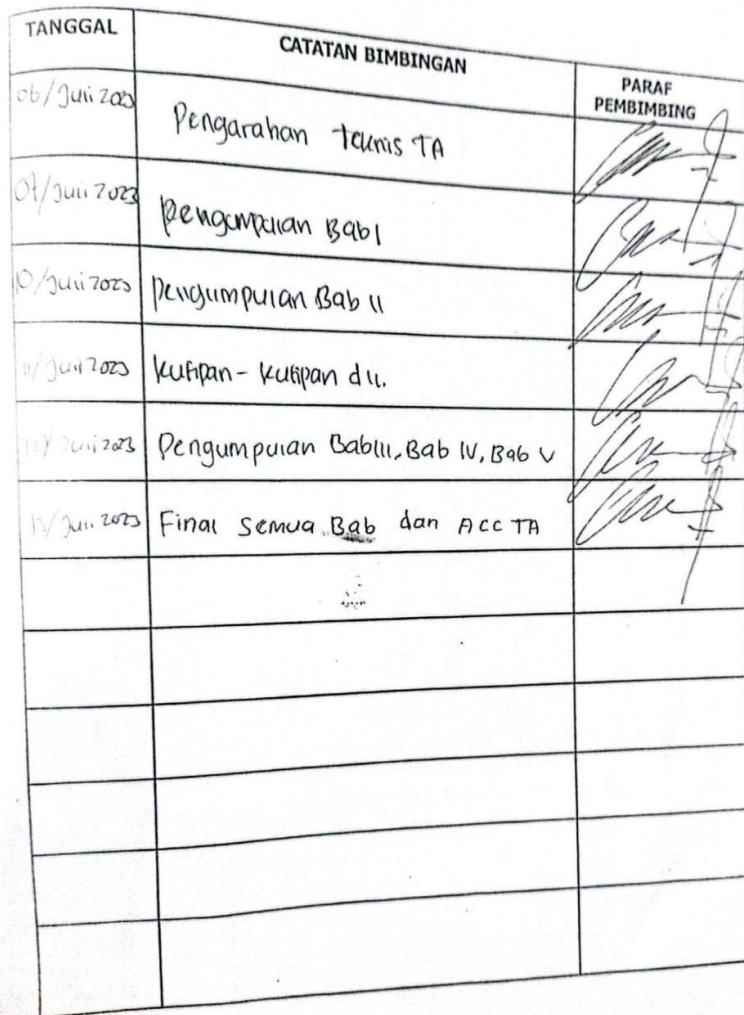 TANGGAL
CATATAN BIMBINGAN
PARAF
PEMBIMBING
06/Juli 2023
Pengarahan teknis TA
07/Juli 2023
Pengumpulan Bab I
10/Juli 2023
Pengumpulan Bab II
11/Juli 2023
Kutipan - Kutipan dll.
12/Juli 2023
Pengumpulan Bab III, Bab IV, Bab V
Juli 2023
Final Semua Bab dan ACC TA